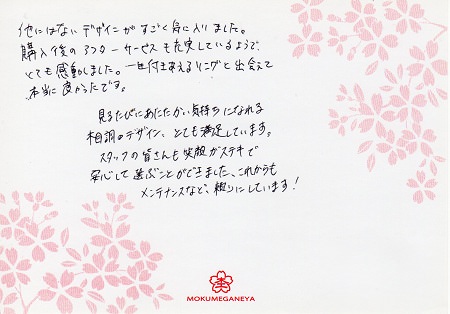 他にはないデザインがすごく気に入りました。
購入後のアフターサービスも充実しているようで、
とても感動しました。一生付き合えるリングと出会えて
本当に良かったです。
見るたびにあたたかい気持ちになれる
木目調のデザイン、とても満足しています。
スタッフの皆さんも笑顔がステキで
安心して選ぶことができました、これからも
メンテナンスなど、頼りにしています！
MOKUMEGANEYA